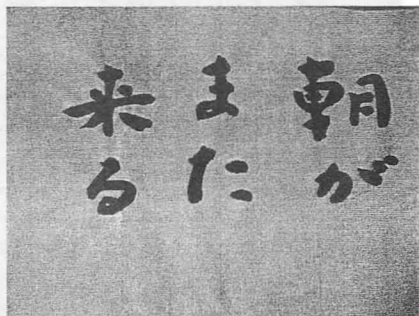 朝が
また
来る